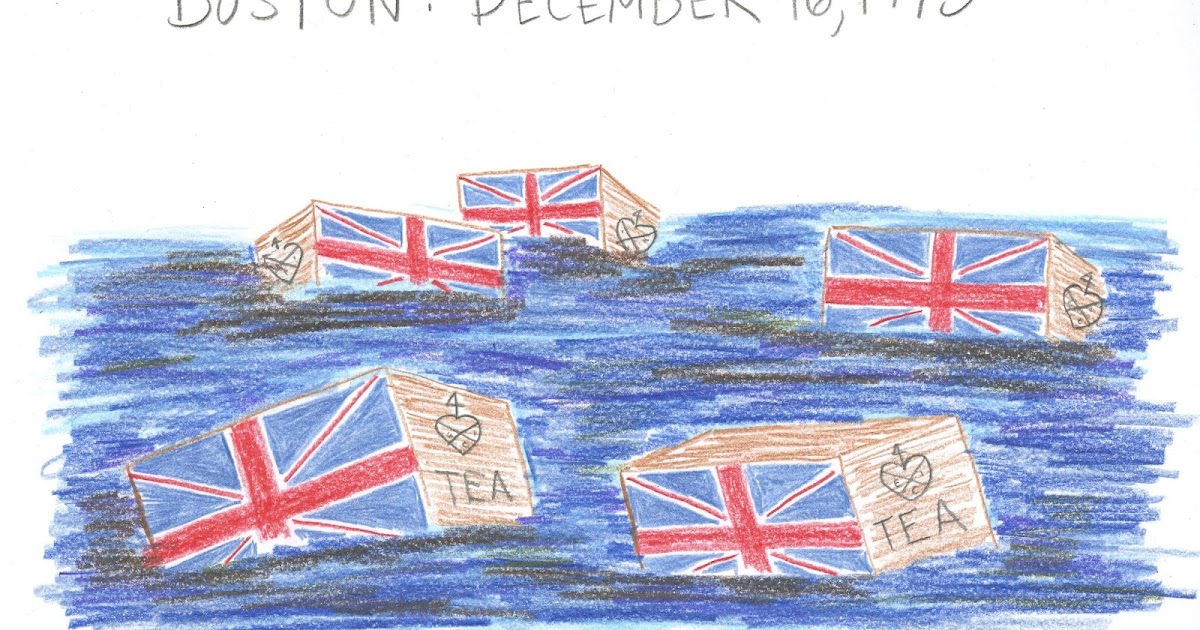 BOSTON: DECEMBER 16, 1773
TEA
TEA